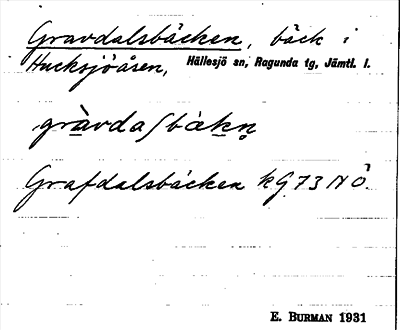 Gravdalsbäcken, bäck i
Hucksjöåsen, Hällesjö sn, Ragunda tg, Jämtl. l.
Grafdalsbäcken kG 73 NÖ.
E. BURMAN 1931